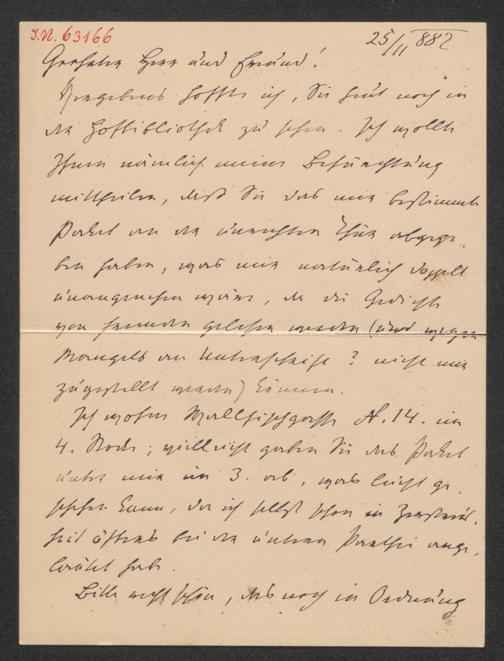 I.N. 63166
25/II 882
Geehrter Herr und Freund!
Vergebens hoffte ich, Sie heut noch in
der Hofbibliothek zu sehen. Ich wollte
Ihnen nämlich meine Befürchtung
mittheilen, daß Sie das mir bestimmte
Paket an der unrechten Thür abgege-
ben haben, was mir natürlich doppelt
unangenehm wäre, da die Gedichte
von Fremden gelesen werden (und wegen
Mangels der Unterschrift? nicht mir
zugestellt werden) können.
Ich wohne Wallfischgasse N. 14. im
4. Stock; vielleicht gaben Sie das Paket
unter mir im 3. ab, was leicht ge-
schehen kann, da ich selbst schon in Zerstreut-
heit öfters bei der untern Parthei ange-
läutet habe.
Bitte recht schön, das noch in Ordnung